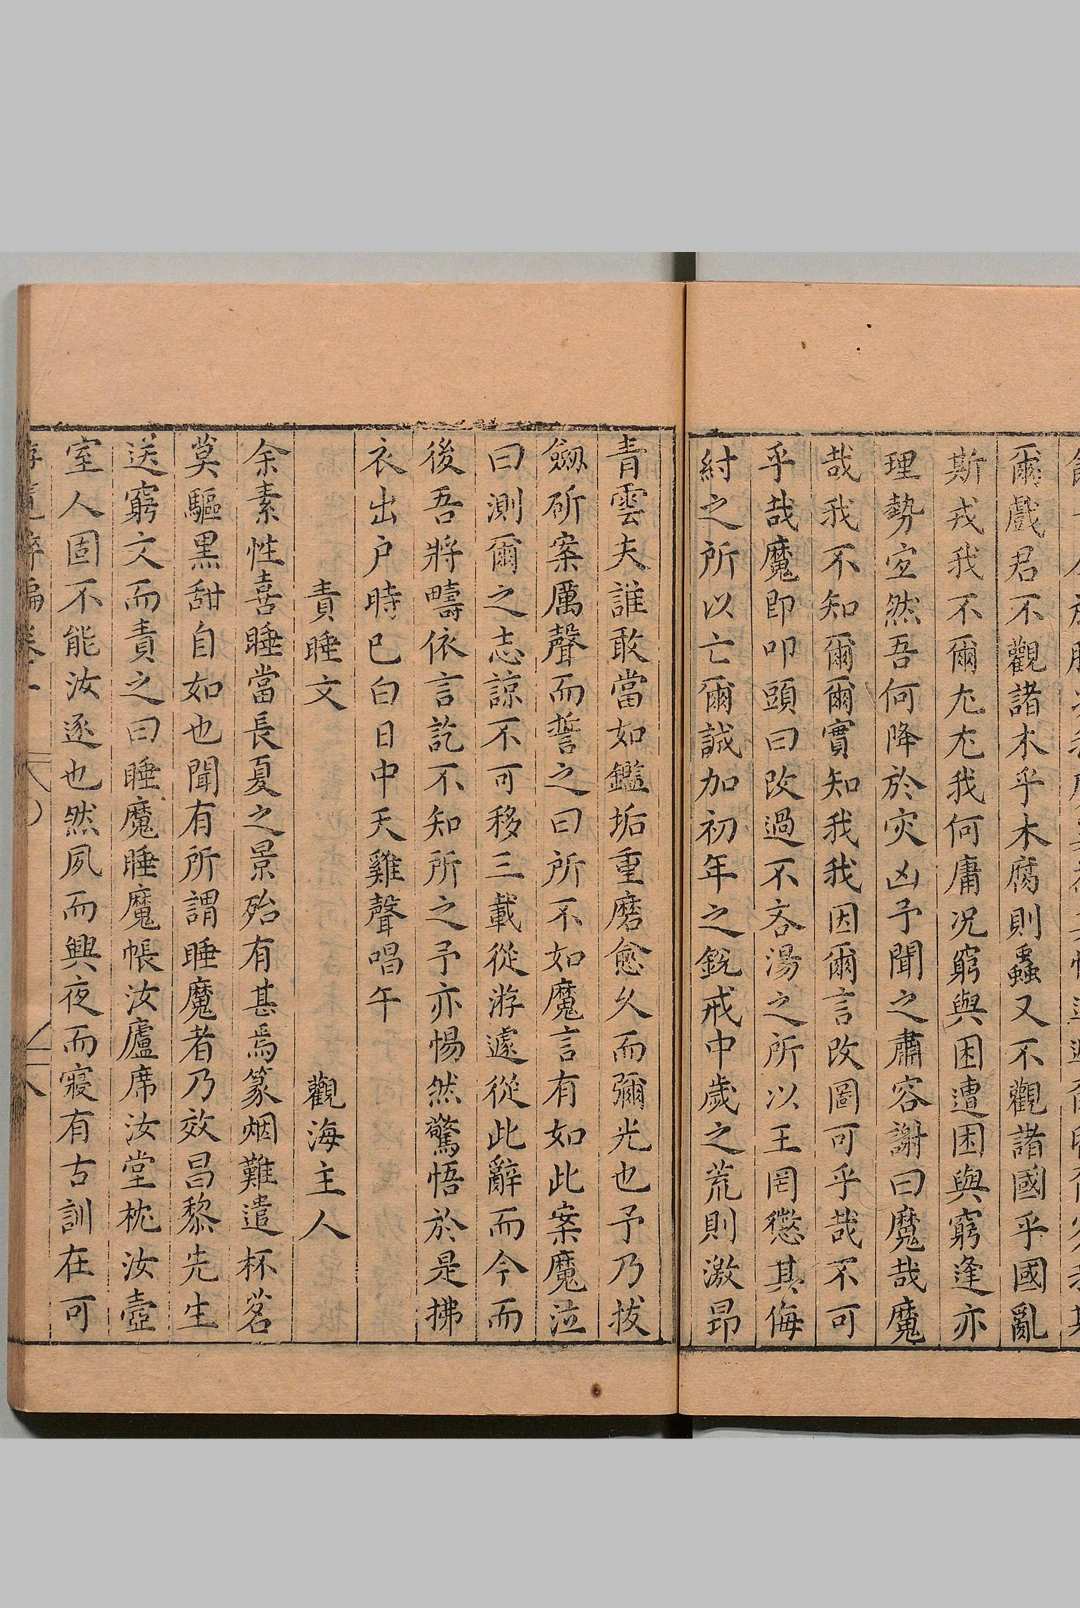 爾戲君不觀諸木乎木腐則蟲又不觀諸國乎國亂
斯戎我不爾尤尤我何庸况窮與困遭困與窮逢亦
理勢宜然吾何降於灾凶予聞之肅容謝曰魔哉魔
哉我不知爾爾實知我我因爾言改圖可乎哉不可
乎哉魔即叩頭曰改過不吝湯之所以王罔懲其侮
紂之所以亡爾誠加初年之銳戒中歲之荒則激昂
青雲夫誰敢當如鑑垢重磨愈久而彌光也予乃拔
劔斫案厲聲而誓之曰所不如魔言有如此案魔泣
曰測爾之志諒不可移三載從游遽從此辭而今而
後吾將疇依言訖不知所之予亦惕然驚悟於是拂
衣出户時巳白日中天雞聲唱午
責睡文　觀海主人
余素性喜睡當長夏之景殆有甚焉篆烟難遣杯茗
莫驅黑甜自如也聞有所謂睡魔者乃效昌黎先生
送窮文而責之曰睡魔睡魔帳汝廬席汝堂枕汝壼
室人固不能汝逐也然夙而興夜而寢有古訓在可